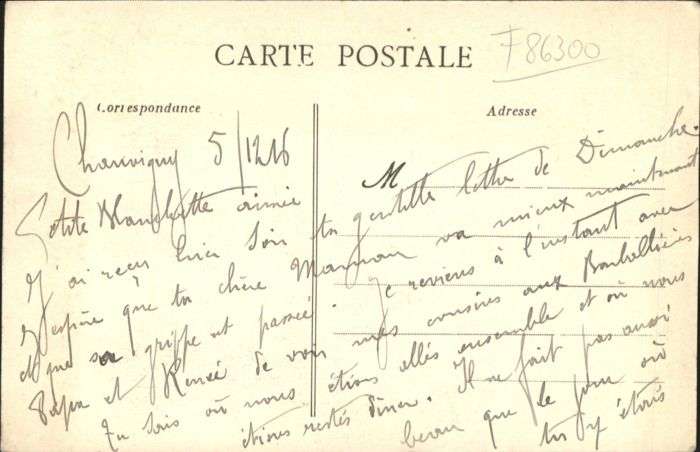 CARTE POSTALE
F86300
Correspondance
Adresse
M
Chauvigny 5/1216
Petite Manchette aimée
J'ai reçu hier soir ta gentille lettre de Dimanche.
J'espère que ta chère Maman va mieux maintenant
et que sa grippe est passée. Je reviens à l'instant avec
Papa et Renée de voir mes cousins aux Barballières
Tu sais où nous étions allés ensemble et où nous
étions restés dîner. Il ne fait pas aussi
beau que le jour où
tu y étais